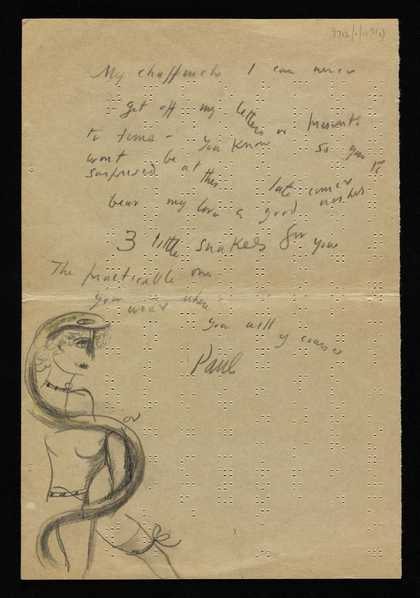 My chaffinch I can never
get off my letters or presents
to time - You know so you
wont be
surprised at this late comer to
bear my love & good wishes
3 little snakes for you
The practicable one
you wear when
you will of course
or
Paul